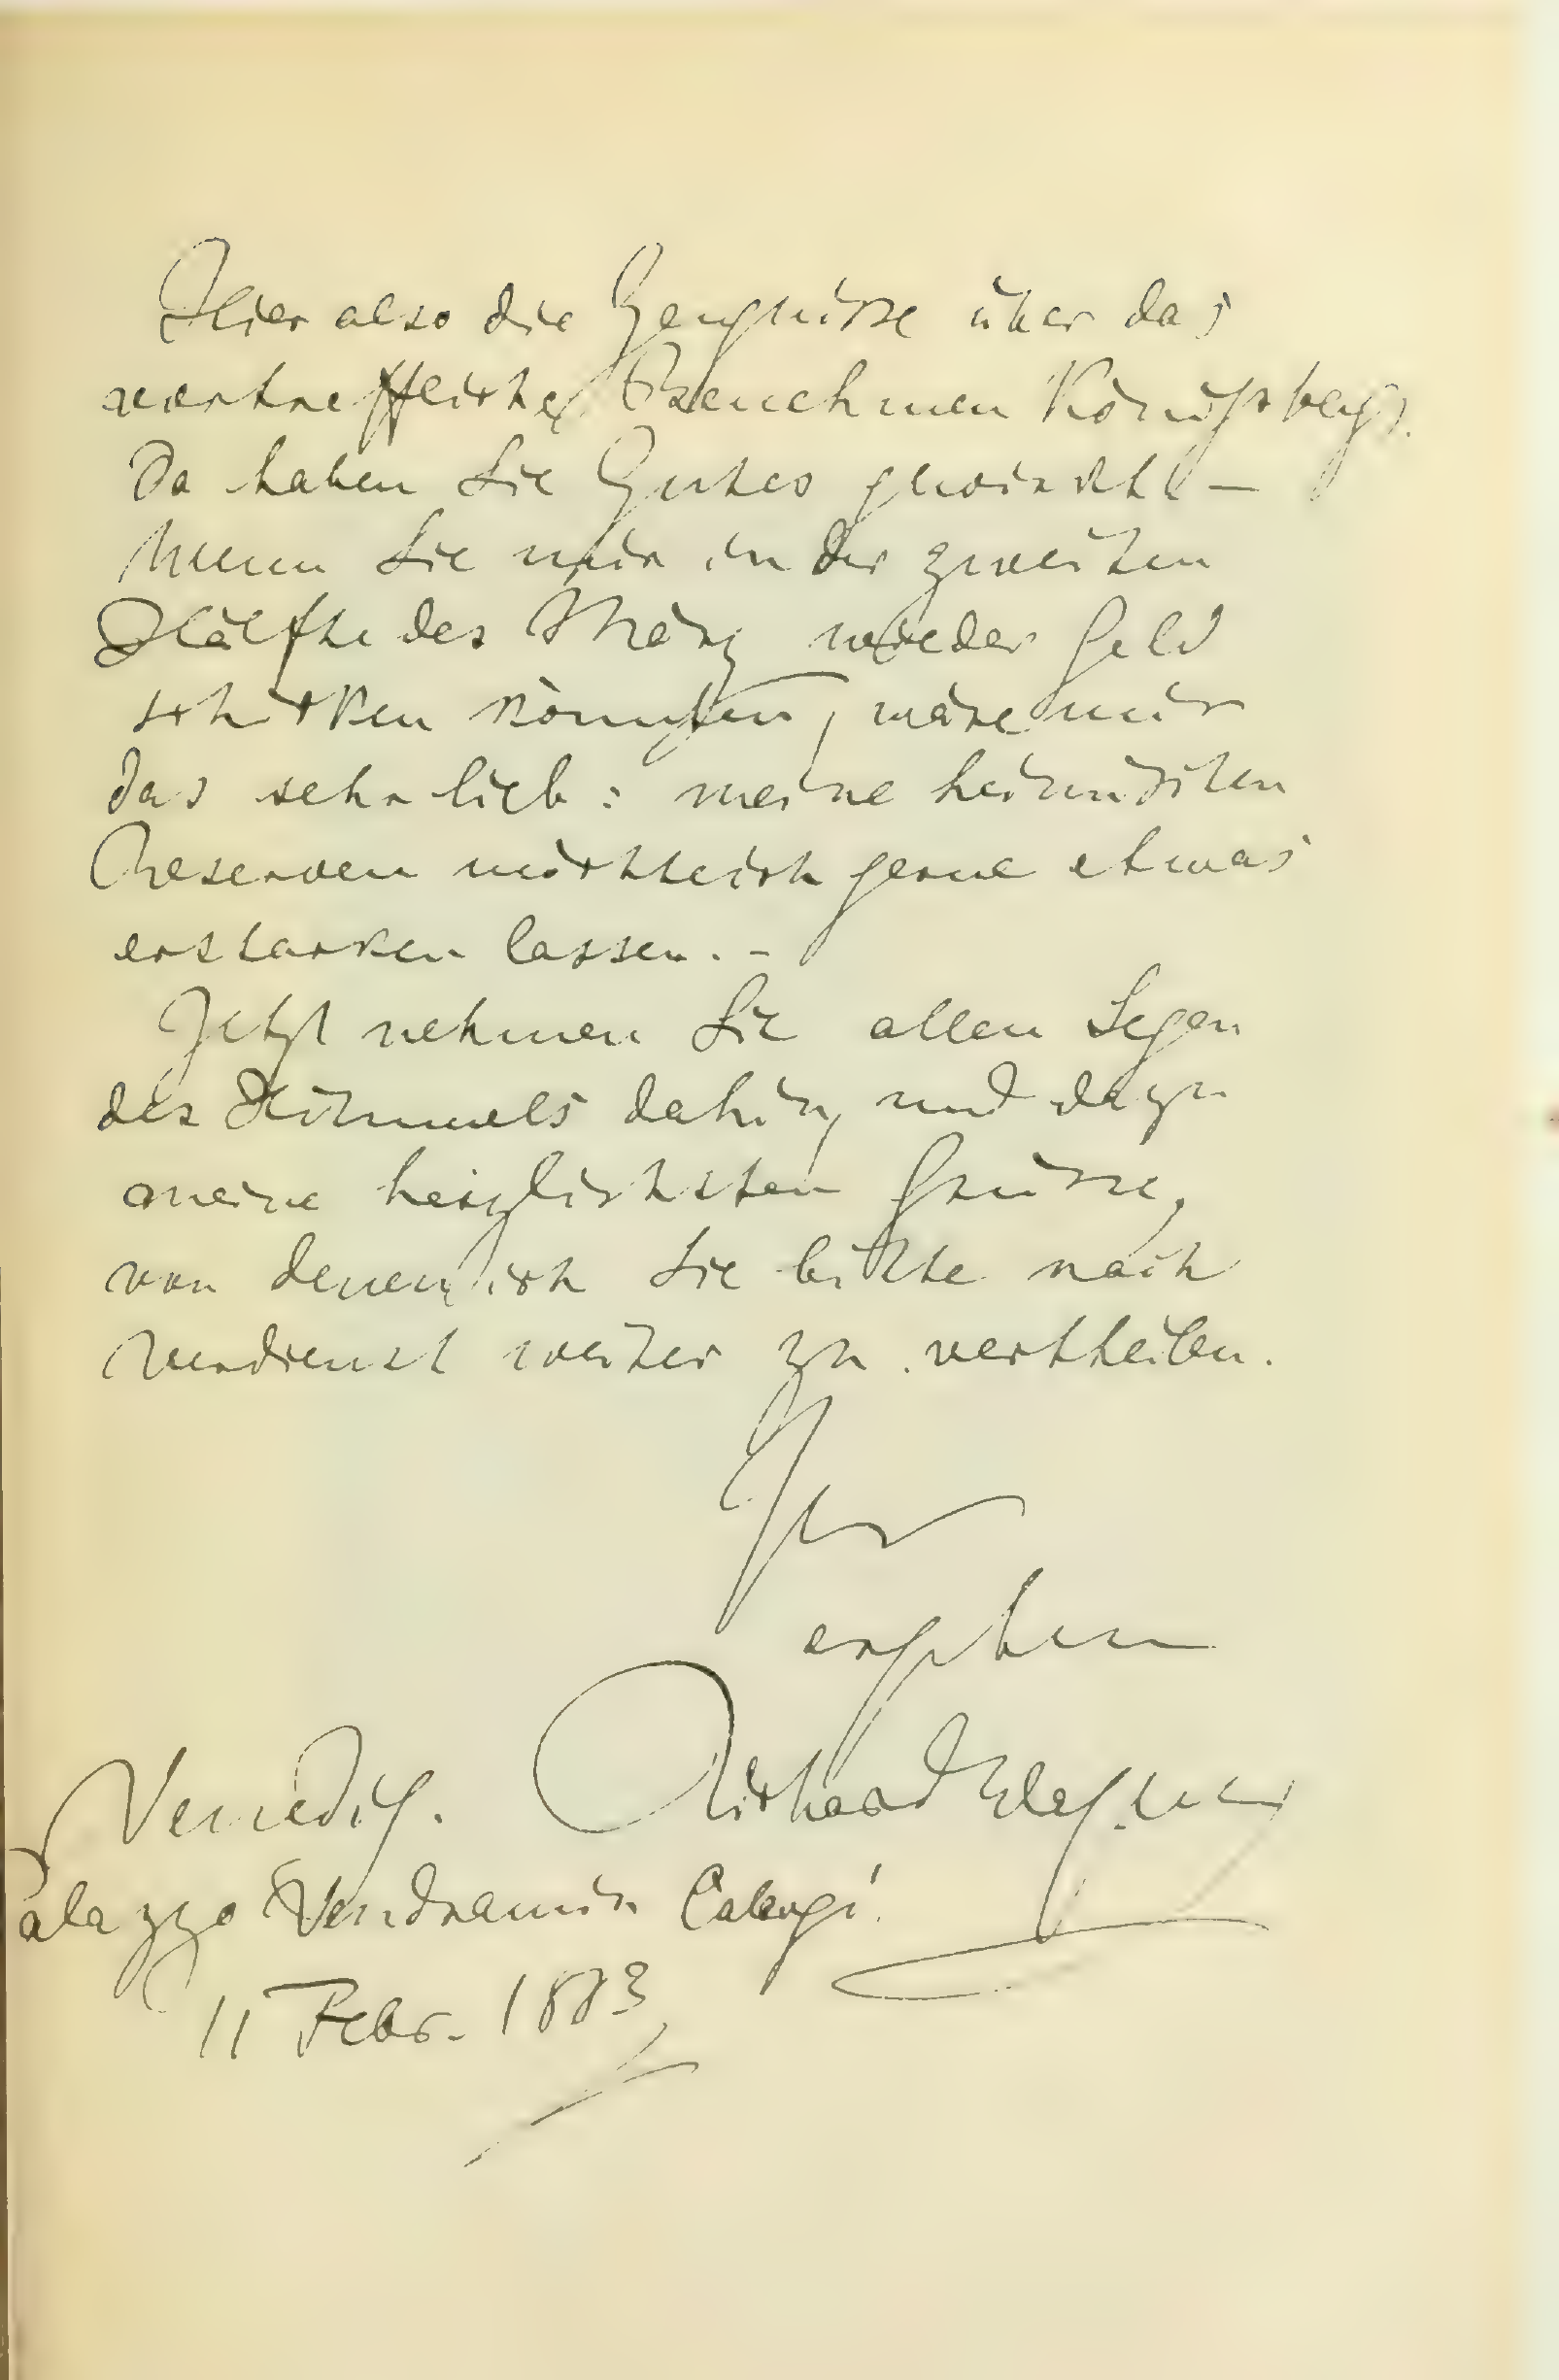 Hier also die Zeugnisse über das
vortreffliche Benehmen Königsbergs.
Da haben Sie Gutes gewirkt! —
Wenn Sie mir in der zweiten
Hälfte des März wieder Geld
schicken könnten, wäre mir
das sehr lieb: meine heimischen
Reserven möchte ich gerne etwas
erstarken lassen. –
Jetzt nehmen Sie allen Segen
des Himmels dahin, und dazu
meine herzlichsten Grüsse,
von denen ich Sie bitte nach
Verdienst weiter zu vertheilen.
Ihr
ergebener
Richard Wagner
Venedig.
Palazzo Vendramin Calergi.
11 Febr. 1883